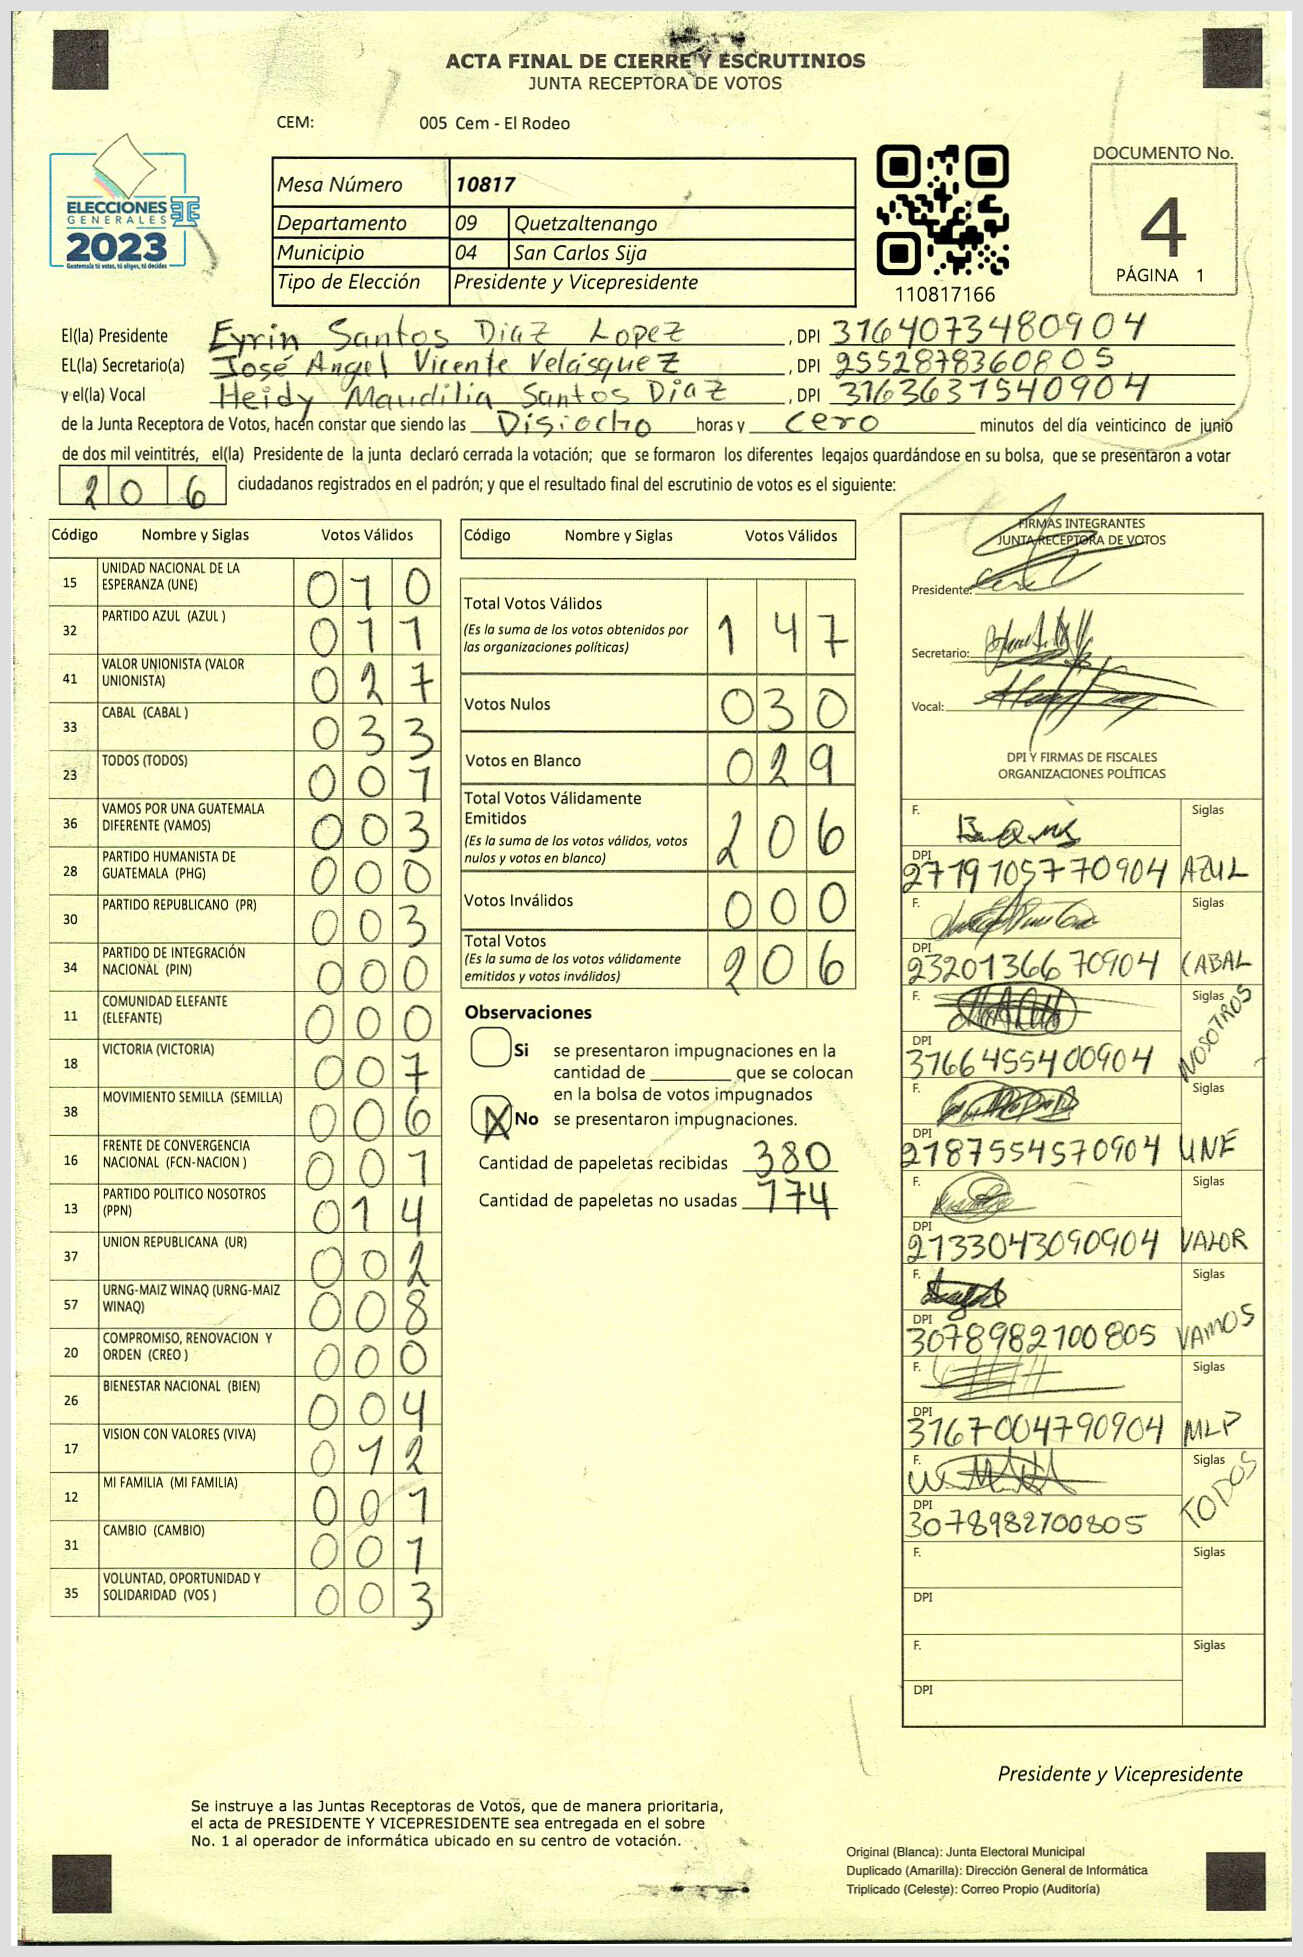 ACTA FINAL DE CIERRE Y ESCRUTINIOS
JUNTA RECEPTORA DE VOTOS
CEM: 005 Cem - El Rodeo
ELECCIONES
GENERALES
2023
Guatemala tú votas, tú eliges, tú decides
Mesa Número 10817
Departamento 09 Quetzaltenango
Municipio 04 San Carlos Sija
Tipo de Elección Presidente y Vicepresidente
110817166
DOCUMENTO No.
4
PÁGINA 1
El(la) Presidente Eyrin Santos Diaz Lopez, DPI 3164073480904
EL(la) Secretario(a) José Angel Vicente Velásquez, DPI 2552878360805
y el(la) Vocal Heidy Maudilia Santos Diaz, DPI 3163631540904
de la Junta Receptora de Votos, hacen constar que siendo las Disiocho horas y cero minutos del día veinticinco de junio
de dos mil veintitrés, el(la) Presidente de la junta declaró cerrada la votación; que se formaron los diferentes legajos guardándose en su bolsa, que se presentaron a votar
206 ciudadanos registrados en el padrón; y que el resultado final del escrutinio de votos es el siguiente:
Código Nombre y Siglas Votos Válidos
15 UNIDAD NACIONAL DE LA ESPERANZA (UNE) 010
32 PARTIDO AZUL (AZUL ) 011
41 VALOR UNIONISTA (VALOR UNIONISTA) 027
33 CABAL (CABAL ) 033
23 TODOS (TODOS) 001
36 VAMOS POR UNA GUATEMALA DIFERENTE (VAMOS) 003
28 PARTIDO HUMANISTA DE GUATEMALA (PHG) 000
30 PARTIDO REPUBLICANO (PR) 003
34 PARTIDO DE INTEGRACIÓN NACIONAL (PIN) 000
11 COMUNIDAD ELEFANTE (ELEFANTE) 000
18 VICTORIA (VICTORIA) 007
38 MOVIMIENTO SEMILLA (SEMILLA) 006
16 FRENTE DE CONVERGENCIA NACIONAL (FCN-NACION ) 001
13 PARTIDO POLITICO NOSOTROS (PPN) 014
37 UNION REPUBLICANA (UR) 002
57 URNG-MAIZ WINAQ (URNG-MAIZ WINAQ) 008
20 COMPROMISO, RENOVACION Y ORDEN (CREO ) 000
26 BIENESTAR NACIONAL (BIEN) 004
17 VISION CON VALORES (VIVA) 012
12 MI FAMILIA (MI FAMILIA) 001
31 CAMBIO (CAMBIO) 001
35 VOLUNTAD, OPORTUNIDAD Y SOLIDARIDAD (VOS ) 003
Código Nombre y Siglas Votos Válidos
Total Votos Válidos 147
(Es la suma de los votos obtenidos por
las organizaciones políticas)
Votos Nulos 030
Votos en Blanco 029
Total Votos Válidamente
Emitidos 206
(Es la suma de los votos válidos, votos
nulos y votos en blanco)
Votos Inválidos 000
Total Votos 206
(Es la suma de los votos válidamente
emitidos y votos inválidos)
Observaciones
Si se presentaron impugnaciones en la
cantidad de ________ que se colocan
en la bolsa de votos impugnados
X No se presentaron impugnaciones.
Cantidad de papeletas recibidas 380
Cantidad de papeletas no usadas 174
FIRMAS INTEGRANTES
JUNTA RECEPTORA DE VOTOS
Presidente:
Secretario:
Vocal:
DPI Y FIRMAS DE FISCALES
ORGANIZACIONES POLÍTICAS
F. Siglas
DPI 2719105770904 AZUL
F. Siglas
DPI 2320136670904 CABAL
F. Siglas
DPI 3166455400904 NOSOTROS
F. Siglas
DPI 2187554570904 UNE
F. Siglas
DPI 2133043090904 VALOR
F. Siglas
DPI 3078982100805 VAMOS
F. Siglas
DPI 3167004790904 MLP
F. Siglas
DPI 3078982700805 TODOS
F. Siglas
DPI
F. Siglas
DPI
Presidente y Vicepresidente
Se instruye a las Juntas Receptoras de Votos, que de manera prioritaria,
el acta de PRESIDENTE Y VICEPRESIDENTE sea entregada en el sobre
No. 1 al operador de informática ubicado en su centro de votación.
Original (Blanca): Junta Electoral Municipal
Duplicado (Amarilla): Dirección General de Informática
Triplicado (Celeste): Correo Propio (Auditoría)